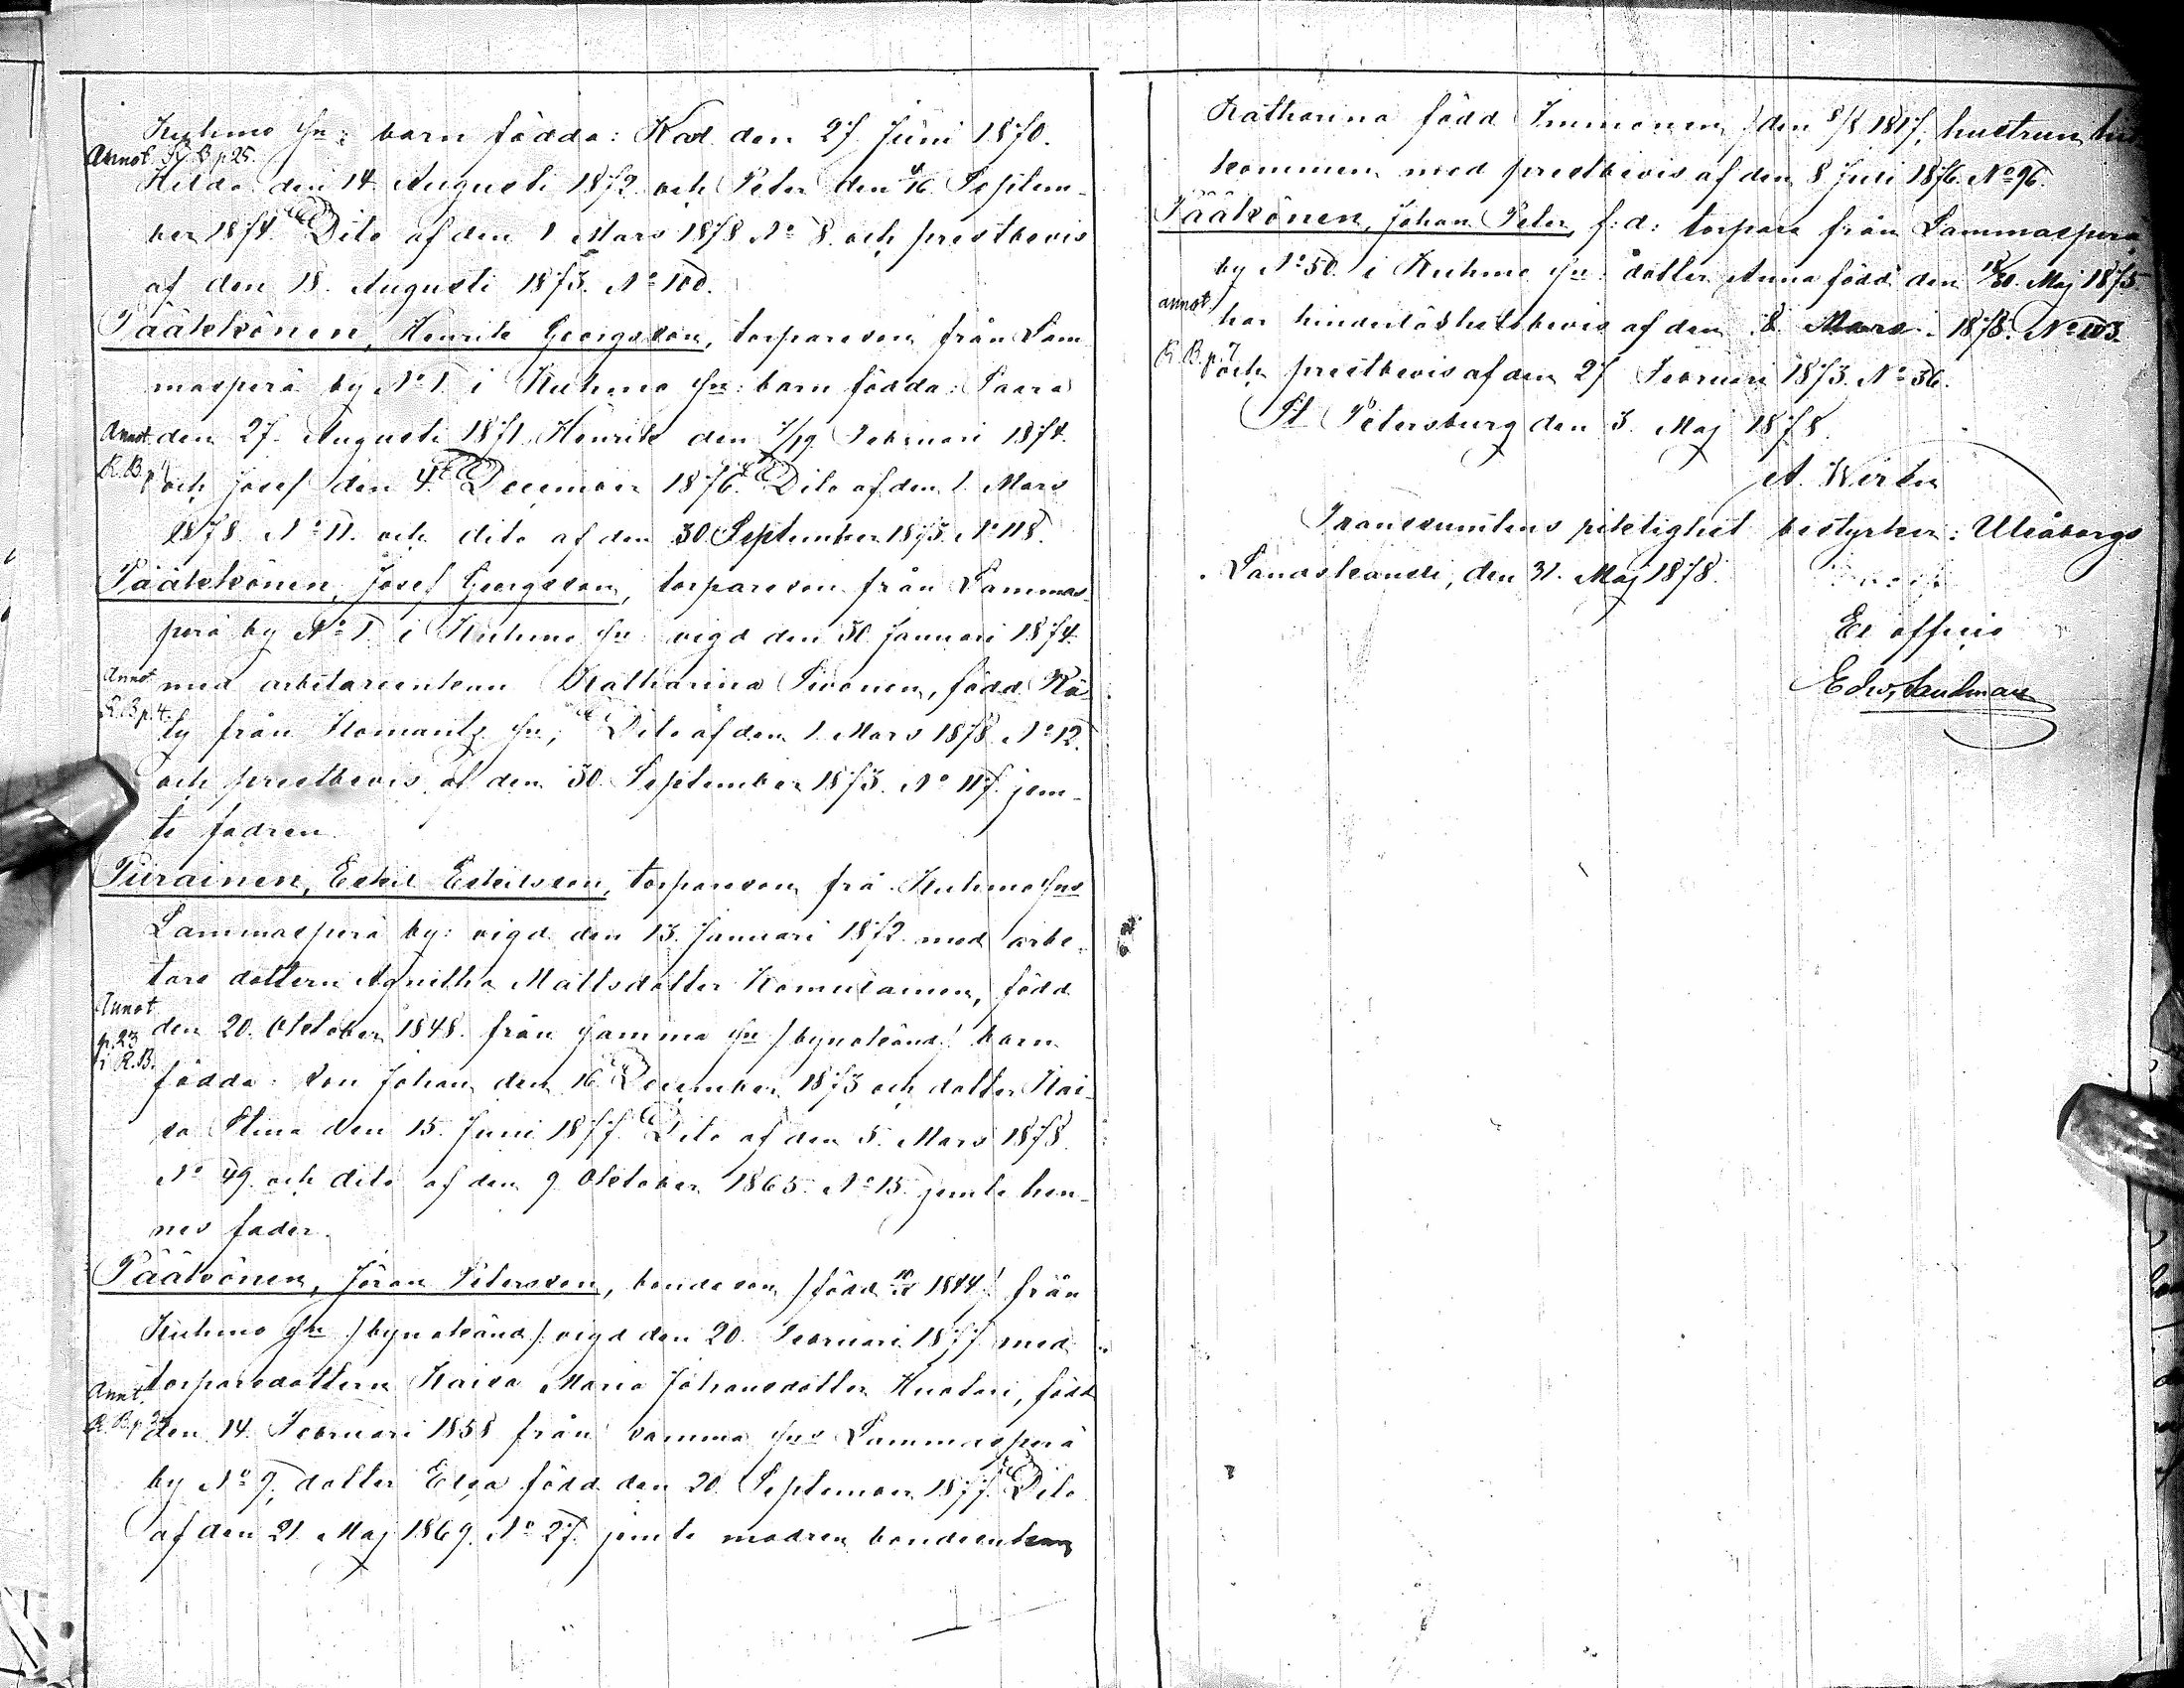 Kuhmo sn: barn födda: Karl den 27 Juni 1870.
Annot. R.B. p 25.
Hilda den 14 Augusti 1872 och Peter den 4/16 Septem-
ber 1874. Dito af den 1 Mars 1878 No 8. och prestbevis
af den 18. Augusti 1873. No 100.
Pääkkönen, Henrik Georgsson, torpareson från Lam
masperä by No 1. i Kuhmo sn: barn födda: Saara
Annot. den 27. Augusti 1871. Henrik den 7/19 Februari 1874.
R.B. p
och Josef den 4. December 1876. Dito af den 1. Mars
1878. No 11. och dito af den 30 September 1873. No 118.
Pääkkönen, Josef Georgsson, torpareson från Lammas-
perä by No 1. i Kuhmo sn vigd den 30 Januari 1874.
Annot med arbetareenkan Katharina Sivonen, född Rä
R.B p. 4.
ty från Ilomants sn; Dito af den 1. Mars 1878. No 12.
och prestbevis af den 30. September 1873. No 117. jem-
te fadren.
Piirainen, Eskil Eskilsson, torpareson frå Kuhmo sns
Lammasperä by: vigd den 13. Januari 1872. med arbe-
tare dottern Agnitha Mattsdotter Komulainen, född
Annot
den 20. Oktober 1848. från samma sn /by okänd/ barn
p. 23
i R.B.
födda: son Johan den 16 December 1873 och dotter Kai-
sa Stina den 15. Juni 1877. Dito af den 5. Mars 1878.
No 49. och dito af den 9 Oktober 1865. No 15. jemte hen-
nes fader.
Pääkönen, Jöran Petersson, bondeson /född 1844/ från
Kuhmo sn /by okänd/ vigd den 20. Februari 1877 med
torparedottern Kaisa Maria Johansdotter Huotari, född
Annt.
R.B. p
den 14. Februari 1858 från samma sns Lammasperä
by No 9; dotter Elsa född den 20. September 1877. Dito
af den 21. Maj 1869. No 27. jemte modren bondeenkan
Katharina född Immonen /den 1817, hustrun
kommen med prestbevis af den 8 Juli 1876. No 96.
Pääkönen, Johan Peter, f: d: torpare från Lammasperä
by No 50. i Kuhmo sn dotter Anna född den 18/30. Maj 1875
annot
har hinderlöshetsbevis af den 8. Mars 1878. No 103.
R.B. p. 7
och prestbevis af den 27 Februari 1873. No 36.
St Petersburg den 3. Maj 1878.
A. Wirén
Transsumtens riktighet bestyrker: Uleåborgs
Landskansli, den 31. Maj 1878.
Ex officio
Edw. Sandman